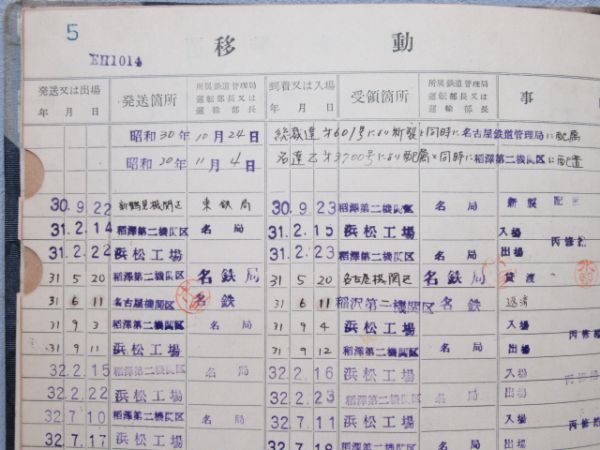 5
EH1014
移 動
発送又は出場 年 月 日 発送箇所 所属鉄道管理局運転部長又は運輸部長 到着又は入場 年 月 日 受領箇所 所属鉄道管理局運転部長又は運輸部長 事
昭和30年10月24日 総裁達 601号により新製と同時に名古屋鉄道管理局に配属
昭和 年11月4日 名達乙 3700号により配属と同時に稲澤第二機関区に配置
30.9.22 新鶴見機関区 東鉄局 30.9.23 稲澤第二機関区 名局 新製 配
31.2.14 稲澤第二機関区 名局 31.2.15 浜松工場 入場
31.2.22 浜松工場 31.2.23 稲澤第二機関区 名局 出場 丙修
31 5 20 稲澤第二機関区 名鉄局 31 5 20 名古屋機関区 名鉄局 貸渡
31 6 11 名古屋機関区 名鉄 31 6 11 稲沢第二機関区 名鉄 返済
31 9 3 稲澤第二機関区 名局 31 9 4 浜松工場 入場
31 9 11 浜松工場 31 9 12 稲澤第二機関区 名局 出場 丙修
32.2.15 稲澤第二機関区 名局 32.2.16 浜松工場 入場
32.2.22 浜松工場 32.2.23 稲澤第二機関区 名局 出場 丙修
32.7.10 稲澤第二機関区 名局 32.7.11 浜松工場 入場
32.7.17 浜松工場 32.7.18 稲澤第二機関区 名局 出場